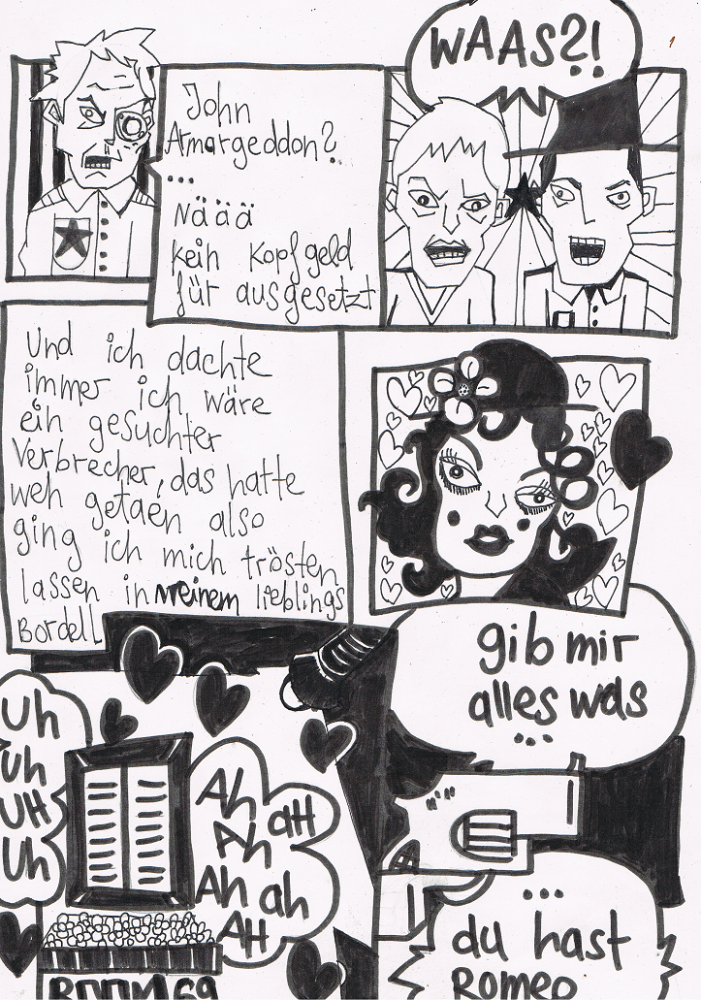 WAAS?!
John
Armargeddon?
...
Näää
kein Kopfgeld
für ausgesetzt
Und ich dachte
immer ich wäre
ein gesuchter
Verbrecher, das hatte
weh getaen also
ging ich mich trösten
lassen in meinem lieblings
Bordell
gib mir
alles was
...
Uh
Uh
UH
Uh
Ah aH
Ah
Ah ah
AH
...
du hast
Romeo
ROOM 69